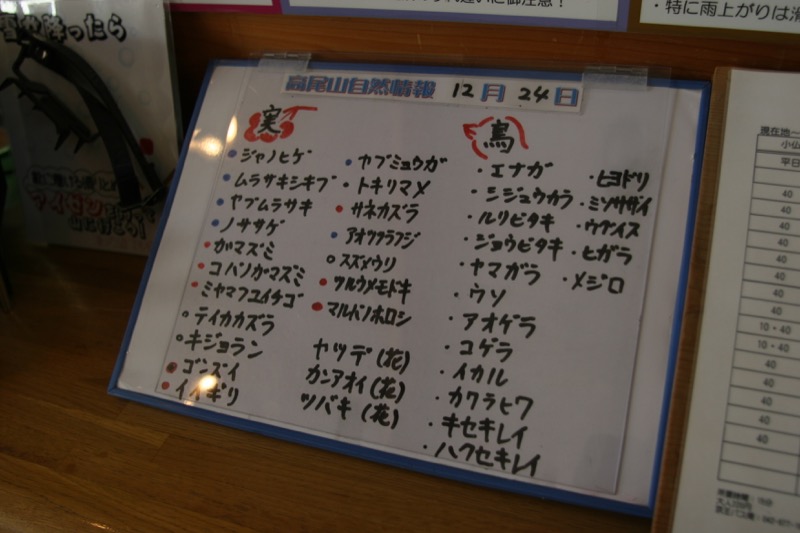 ・特に雨上がりは滑
雪や降ったら
高尾山自然情報 12月 24日
実
・ジャノヒゲ
・ムラサキシキブ
・ヤブムラサキ
・ノササゲ
・ガマズミ
・コバノガマズミ
・ミヤマフユイチゴ
・テイカカズラ
・キジョラン
・ゴンズイ
・イイギリ
・ヤブミョウガ
・トキリマメ
・サネカズラ
・アオツヅラフジ
・スズメウリ
・ツルウメモドキ
・マルバノホロシ
ヤツデ(花)
カンアオイ(花)
ツバキ(花)
鳥
・エナガ
・シジュウカラ
・ルリビタキ
・ジョウビタキ
・ヤマガラ
・ウソ
・アオゲラ
・コゲラ
・イカル
・カワラヒワ
・キセキレイ
・ハクセキレイ
・ヒヨドリ
・ミソサザイ
・ウグイス
・ヒガラ
・メジロ
現在地
小仏
平日
40
40
40
40
40
40
40
10・40
10・40
40
40
40